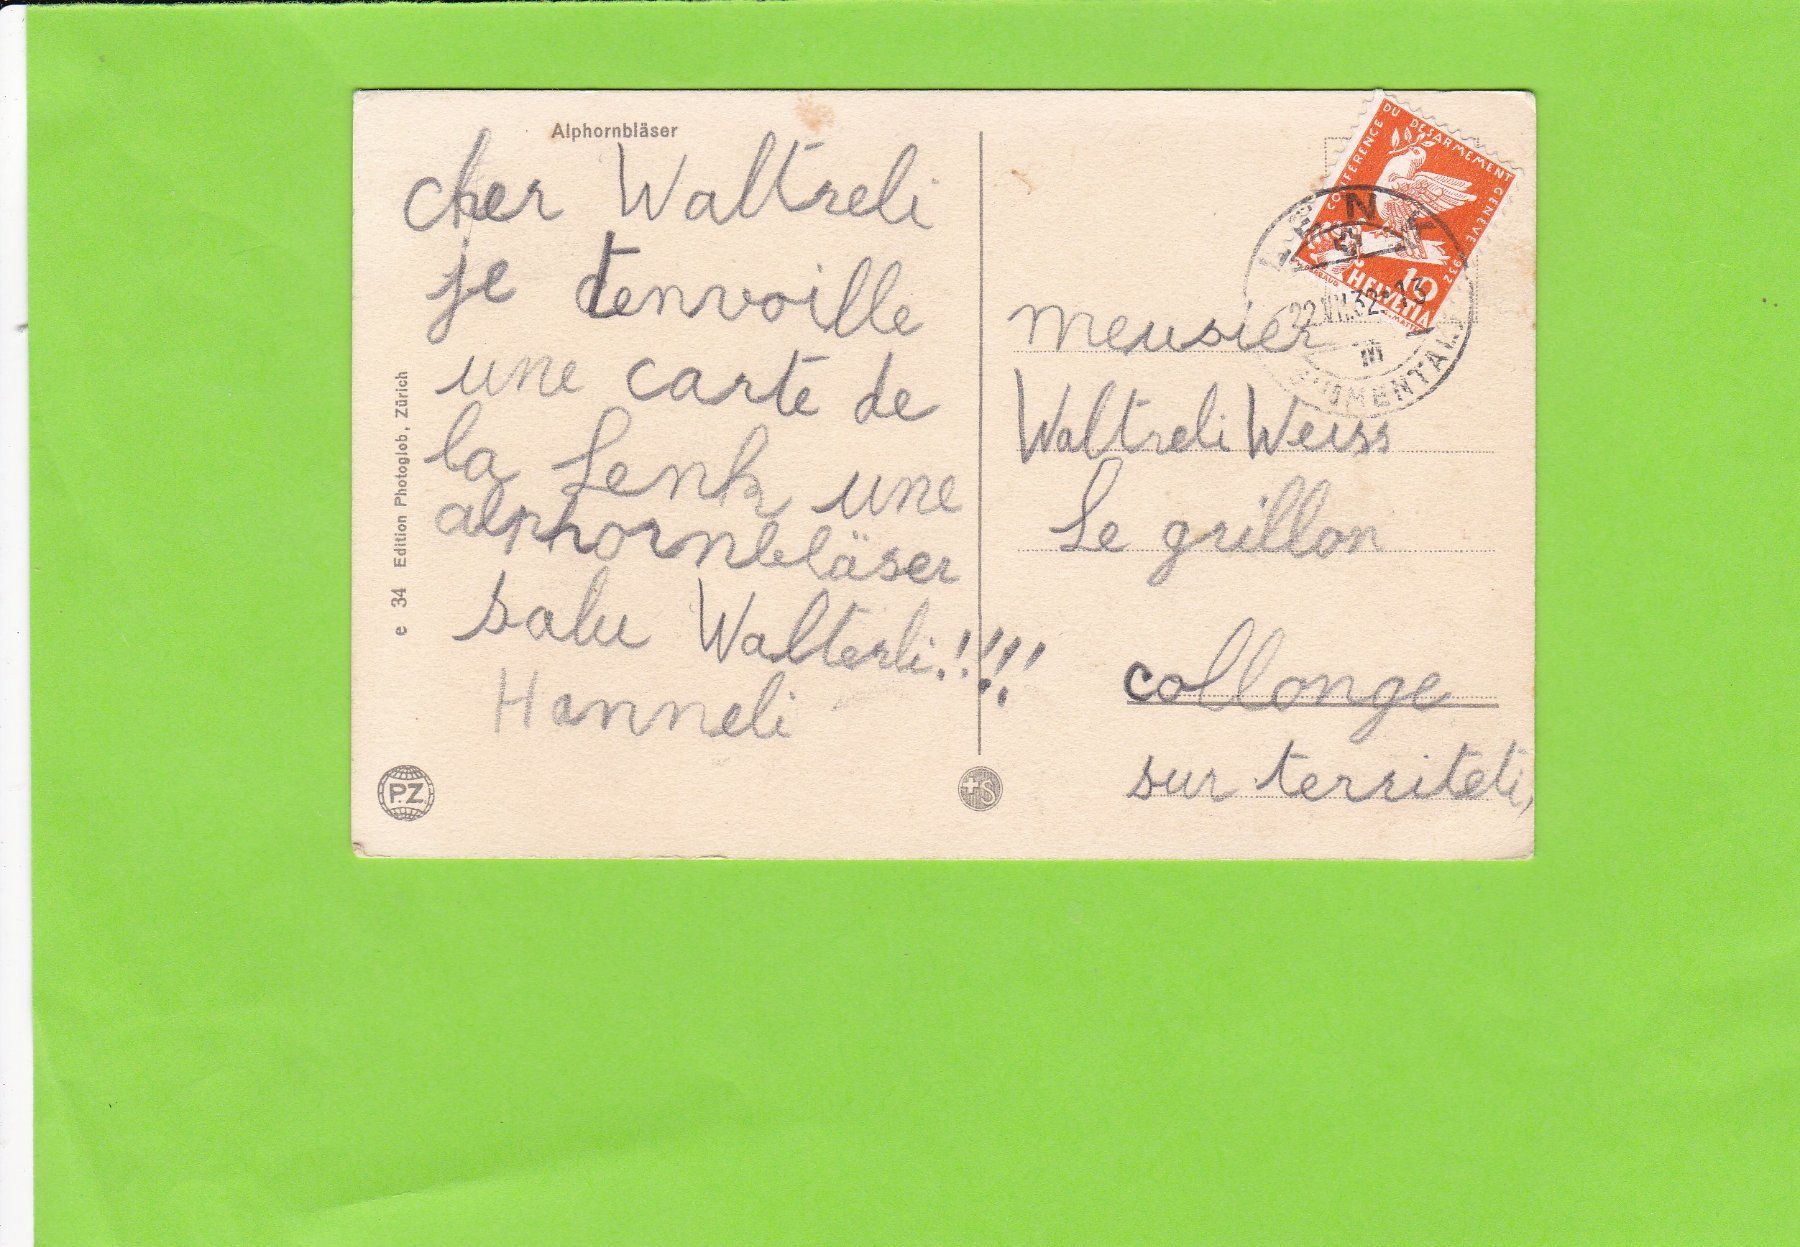 Alphornbläser
cher Waltreli
je tenvoille
une carte de
la Lenk une
alphornbläser
salu Walterli.!!!!
Hanneli
e 34 Edition Photoglob, Zürich
P.Z
S
CONFERENCE DU DESARMEMENT GENEVE 1932
10
HELVETIA
LENK
22.VII.32.-13
III
meusier
Waltreli Weiss
Le grillon
collonge
sur territeti,